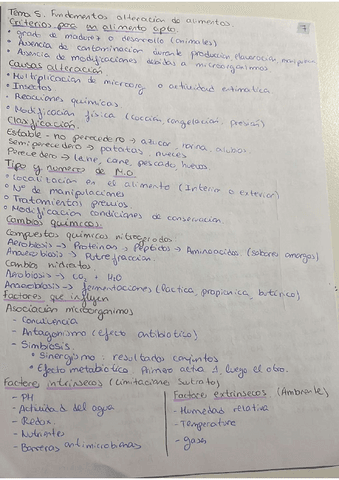 Tema 5. Fundamentos alteración de alimentos.
7
Criterios para un alimento apto.
• grado de madurez o desarrollo (animales)
• Ausencia de contaminación durante producción, elaboración, manipulación
• Ausencia de modificaciones debidas a microorganismos
Causas alteración.
• Multiplicación de microorg. o actividad enzimatica.
• Insectos
• Reacciones químicas
• Modificación física (cocción, congelación, presión)
Clasificación.
Estable - no perecedero → azucar, harina, alubias.
Semiperecedero → patatas, nueces
Perecedero → leche, carne, pescado, huevos
Tipo y numero de M.O.
• Localización en el alimento (Interior o exterior)
• Nº de manipulaciones
• Tratamientos previos.
• Modificación condiciones de conservación.
Cambios químicos.
Compuestos químicos nitrogenados.
Aerobiosis → Proteinas → Peptidos → Aminoacidos (sabores amargos)
Anaerobiosis → Putrefacción.
Cambio hidratos
Aerobiosis → CO2 + H2O
Anaerobiosis → fermentaciones (lactica, propionica, butirico)
Factores que influyen
Asociación microorganismos
- Concurrencia
- Antagonismo (Efecto antibiotico)
- Simbiosis
• Sinergismo: resultados conjuntos
• Efecto metabiotico. Primero actua 1, luego el otro.
Factores intrinsecos (Limitaciones Sustrato)
- PH
- Actividad del agua
- Redox
- Nutrientes
- Barreras antimicrobianas
Factores extrinsecos (Ambiente)
- Humedad relativa
- Temperatura
- gases